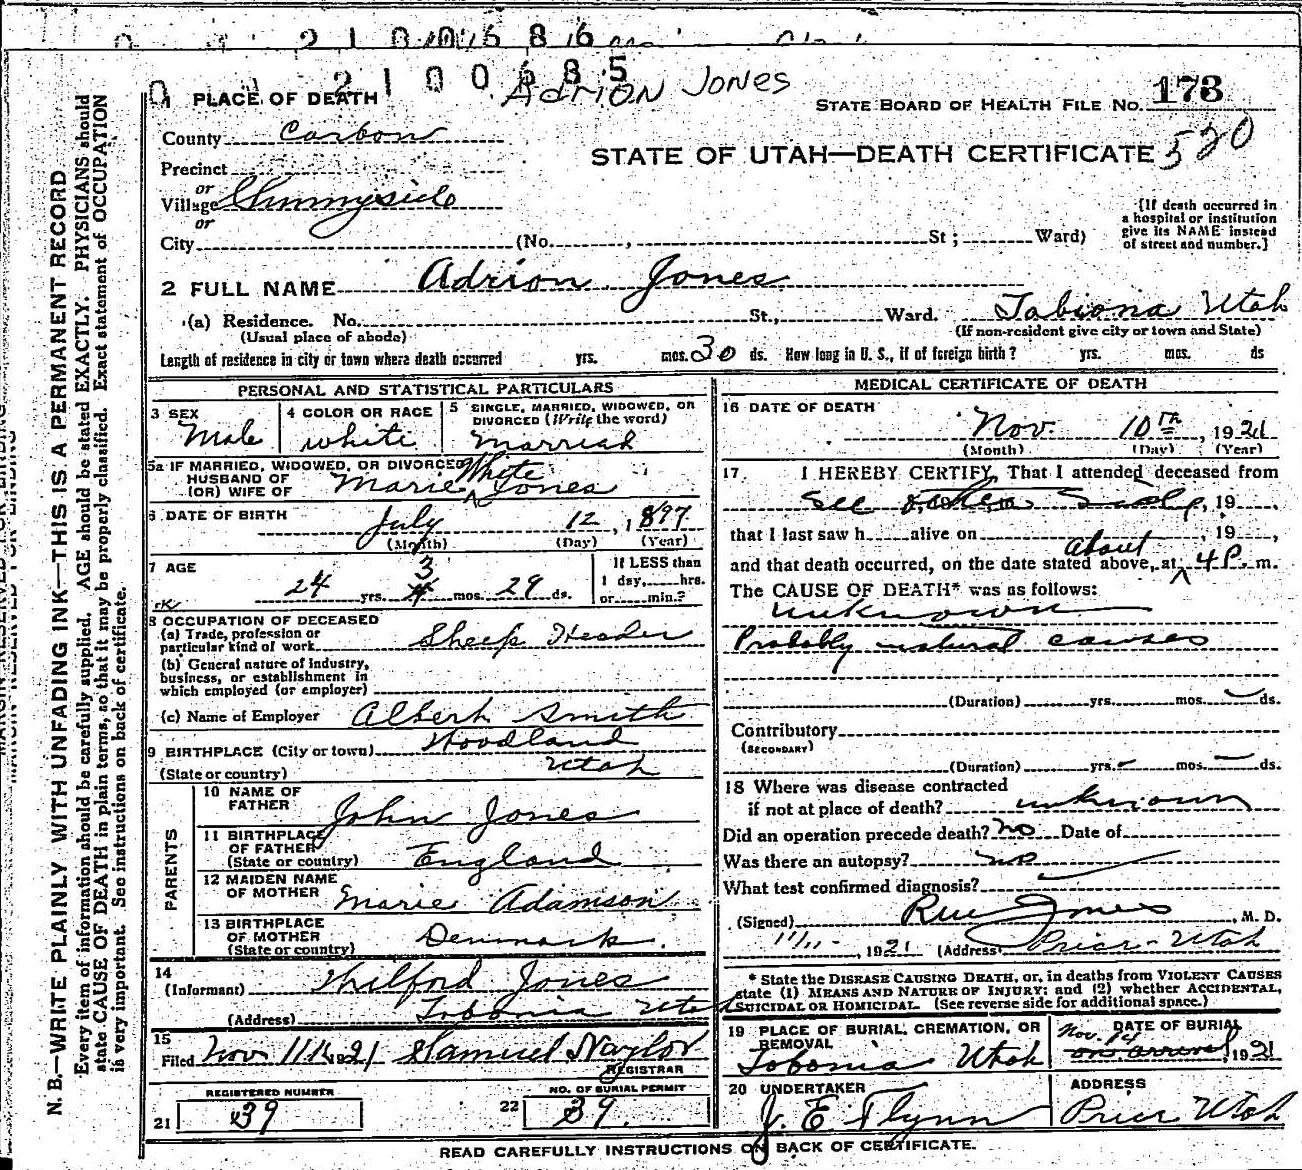 2 1 0 0 6 8 5
Adrion Jones
1 PLACE OF DEATH
STATE BOARD OF HEALTH FILE NO. 173
County Carbon
STATE OF UTAH—DEATH CERTIFICATE 520
Precinct
or
Village Sunnyside
or
City (No. , St ; Ward)
[If death occurred in
a hospital or institution
give its NAME instead
of street and number.]
2 FULL NAME Adrion Jones
(a) Residence. No. St., Ward. Tabiona Utah
(Usual place of abode) (If non-resident give city or town and State)
Length of residence in city or town where death occurred yrs. mos. 30 ds. How long in U. S., if of foreign birth? yrs. mos. ds
PERSONAL AND STATISTICAL PARTICULARS
3 SEX
Male
4 COLOR OR RACE
white
5 SINGLE, MARRIED, WIDOWED, OR
DIVORCED (Write the word)
Married
5a IF MARRIED, WIDOWED, OR DIVORCED
HUSBAND OF
(OR) WIFE OF
Marie White Jones
6 DATE OF BIRTH
July 12, 1897
(Month) (Day) (Year)
7 AGE
24 yrs. 3 mos. 29 ds.
If LESS than
1 day, hrs.
or min.?
8 OCCUPATION OF DECEASED
(a) Trade, profession or
particular kind of work Sheep Header
(b) General nature of industry,
business, or establishment in
which employed (or employer)
(c) Name of Employer Albert Smith
9 BIRTHPLACE (City or town) Woodland
(State or country) Utah
PARENTS
10 NAME OF
FATHER John Jones
11 BIRTHPLACE
OF FATHER
(State or country) England
12 MAIDEN NAME
OF MOTHER Marie Adamson
13 BIRTHPLACE
OF MOTHER
(State or country) Denmark.
14
(Informant) Wilford Jones
(Address) Tobonia Utah
15
Filed Nov 11 1921 Samuel Naylor
REGISTRAR
REGISTERED NUMBER
21 39
NO. OF BURIAL PERMIT
22 39.
MEDICAL CERTIFICATE OF DEATH
16 DATE OF DEATH
Nov. 10th, 1921
(Month) (Day) (Year)
17 I HEREBY CERTIFY, That I attended deceased from
See other Side, 19 ,
that I last saw h alive on , 19 ,
and that death occurred, on the date stated above, at about 4 P. m.
The CAUSE OF DEATH* was as follows:
unknown
Probably natural causes
(Duration) yrs. mos. ds.
Contributory
(SECONDARY)
(Duration) yrs. mos. ds.
18 Where was disease contracted
if not at place of death? unknown
Did an operation precede death? no Date of
Was there an autopsy? no
What test confirmed diagnosis?
(Signed) Jones, M. D.
11/11-, 1921 (Address) Price - Utah
* State the DISEASE CAUSING DEATH, or, in deaths from VIOLENT CAUSES
state (1) MEANS AND NATURE OF INJURY; and (2) whether ACCIDENTAL,
SUICIDAL OR HOMICIDAL. (See reverse side for additional space.)
19 PLACE OF BURIAL, CREMATION, OR
REMOVAL
Tobonia Utah
DATE OF BURIAL
Nov. 14
on arrival, 1921
20 UNDERTAKER
J. E. Flynn
ADDRESS
Price Utah
READ CAREFULLY INSTRUCTIONS ON BACK OF CERTIFICATE.
N. B.—WRITE PLAINLY WITH UNFADING INK—THIS IS A PERMANENT RECORD
Every item of information should be carefully supplied. AGE should be stated EXACTLY. PHYSICIANS should
state CAUSE OF DEATH in plain terms, so that it may be properly classified. Exact statement of OCCUPATION
is very important. See instructions on back of certificate.